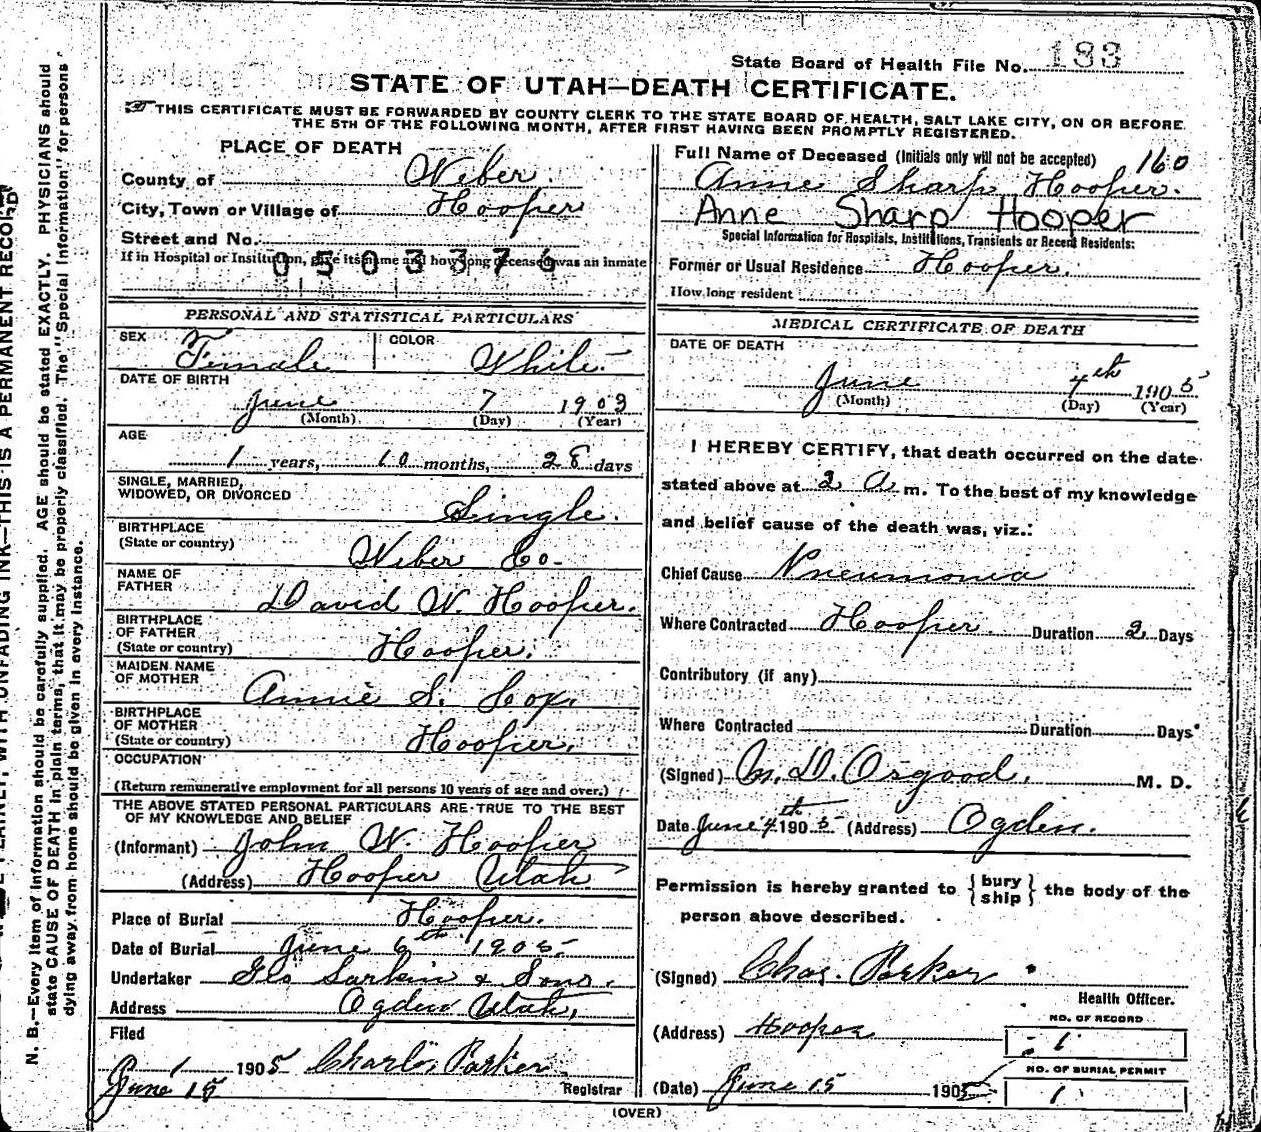 State Board of Health File No. 183
STATE OF UTAH—DEATH CERTIFICATE.
THIS CERTIFICATE MUST BE FORWARDED BY COUNTY CLERK TO THE STATE BOARD OF HEALTH, SALT LAKE CITY, ON OR BEFORE
THE 5TH OF THE FOLLOWING MONTH, AFTER FIRST HAVING BEEN PROMPTLY REGISTERED.
PLACE OF DEATH
County of Weber.
City, Town or Village of Hooper
Street and No.
If in Hospital or Institution, give its name and how long deceased was an inmate
0503376
PERSONAL AND STATISTICAL PARTICULARS
SEX Female COLOR White
DATE OF BIRTH
June 7 1903
(Month) (Day) (Year)
AGE
1 years, 10 months, 28 days
SINGLE, MARRIED,
WIDOWED, OR DIVORCED Single.
BIRTHPLACE
(State or country) Weber Co.
NAME OF
FATHER David W. Hooper.
BIRTHPLACE
OF FATHER
(State or country) Hooper.
MAIDEN NAME
OF MOTHER Annie S. Cox.
BIRTHPLACE
OF MOTHER
(State or country) Hooper.
OCCUPATION
(Return remunerative employment for all persons 10 years of age and over.)
THE ABOVE STATED PERSONAL PARTICULARS ARE TRUE TO THE BEST
OF MY KNOWLEDGE AND BELIEF
(Informant) John W. Hooper
(Address) Hooper Utah
Place of Burial Hooper.
Date of Burial June 6th 1905
Undertaker Geo Larkin & Sons.
Address Ogden Utah,
Filed
June 1 1905 Charles Parker
June 15 Registrar
Full Name of Deceased (Initials only will not be accepted) 160
Anne Sharp Hooper.
Anne Sharp Hooper
Special Information for Hospitals, Institutions, Transients or Recent Residents:
Former or Usual Residence Hooper.
How long resident
MEDICAL CERTIFICATE OF DEATH
DATE OF DEATH
June 4th 1905
(Month) (Day) (Year)
I HEREBY CERTIFY, that death occurred on the date
stated above at 2 A m. To the best of my knowledge
and belief cause of the death was, viz.:
Chief Cause Pneumonia
Where Contracted Hooper. Duration 2 Days
Contributory (if any)
Where Contracted Duration Days
(Signed) D. Osgood. M. D.
Date June 4th 1905 (Address) Ogden.
Permission is hereby granted to {bury
ship} the body of the
person above described.
(Signed) Chas. Parker
Health Officer.
(Address) Hooper
NO. OF RECORD
1
(Date) June 15 1905
NO. OF BURIAL PERMIT
1
(OVER)
PLAINLY, WITH UNFADING INK—THIS IS A PERMANENT RECORD
N. B.—Every item of information should be carefully supplied. AGE should be stated EXACTLY. PHYSICIANS should
state CAUSE OF DEATH in plain terms, that it may be properly classified. The "Special Information" for persons
dying away from home should be given in every instance.